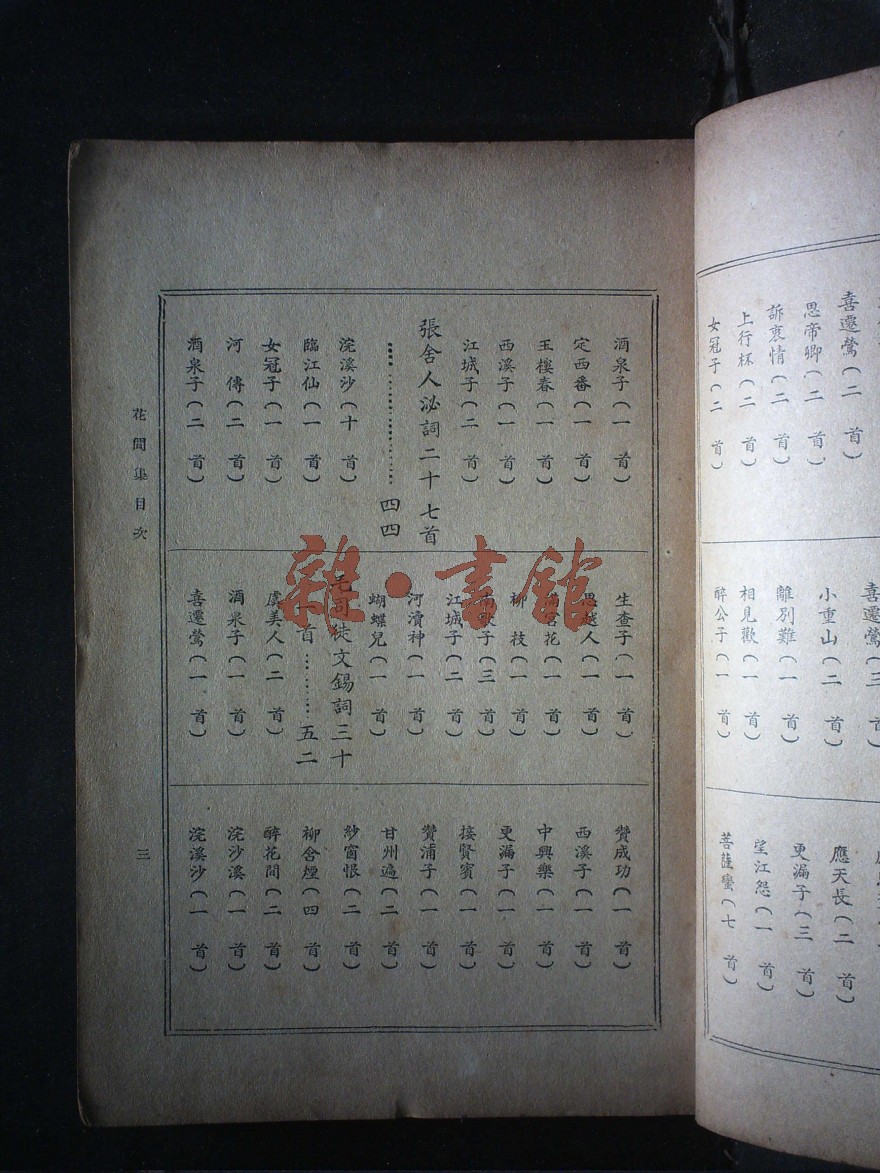 喜遷鶯(二首)
思帝鄉(二首)
訴衷情(二首)
上行杯(二首)
女冠子(二首)
喜遷鶯(三首)
小重山(二首)
離別難(一首)
相見歡(一首)
醉公子(一首)
應天長(二首)
更漏子(三首)
望江怨(一首)
菩薩蠻(七首)
酒泉子(一首)
定西番(一首)
玉樓春(一首)
西溪子(一首)
江城子(二首)
張舍人泌詞二十七首
……………四四
浣溪沙(十首)
臨江仙(一首)
女冠子(一首)
河傳(二首)
酒泉子(二首)
生查子(一首)
思越人(一首)
滿宮花(一首)
柳枝(一首)
南歌子(三首)
江城子(二首)
河瀆神(一首)
蝴蝶兒(一首)
毛司徒文錫詞三十
一首……五二
虞美人(二首)
酒泉子(一首)
喜遷鶯(一首)
贊成功(一首)
西溪子(一首)
中興樂(一首)
更漏子(一首)
接賢賓(一首)
贊浦子(一首)
甘州遍(二首)
紗窗恨(二首)
柳含煙(四首)
醉花間(二首)
浣沙溪(一首)
浣溪沙(一首)
花間集目次
三
雜·書館